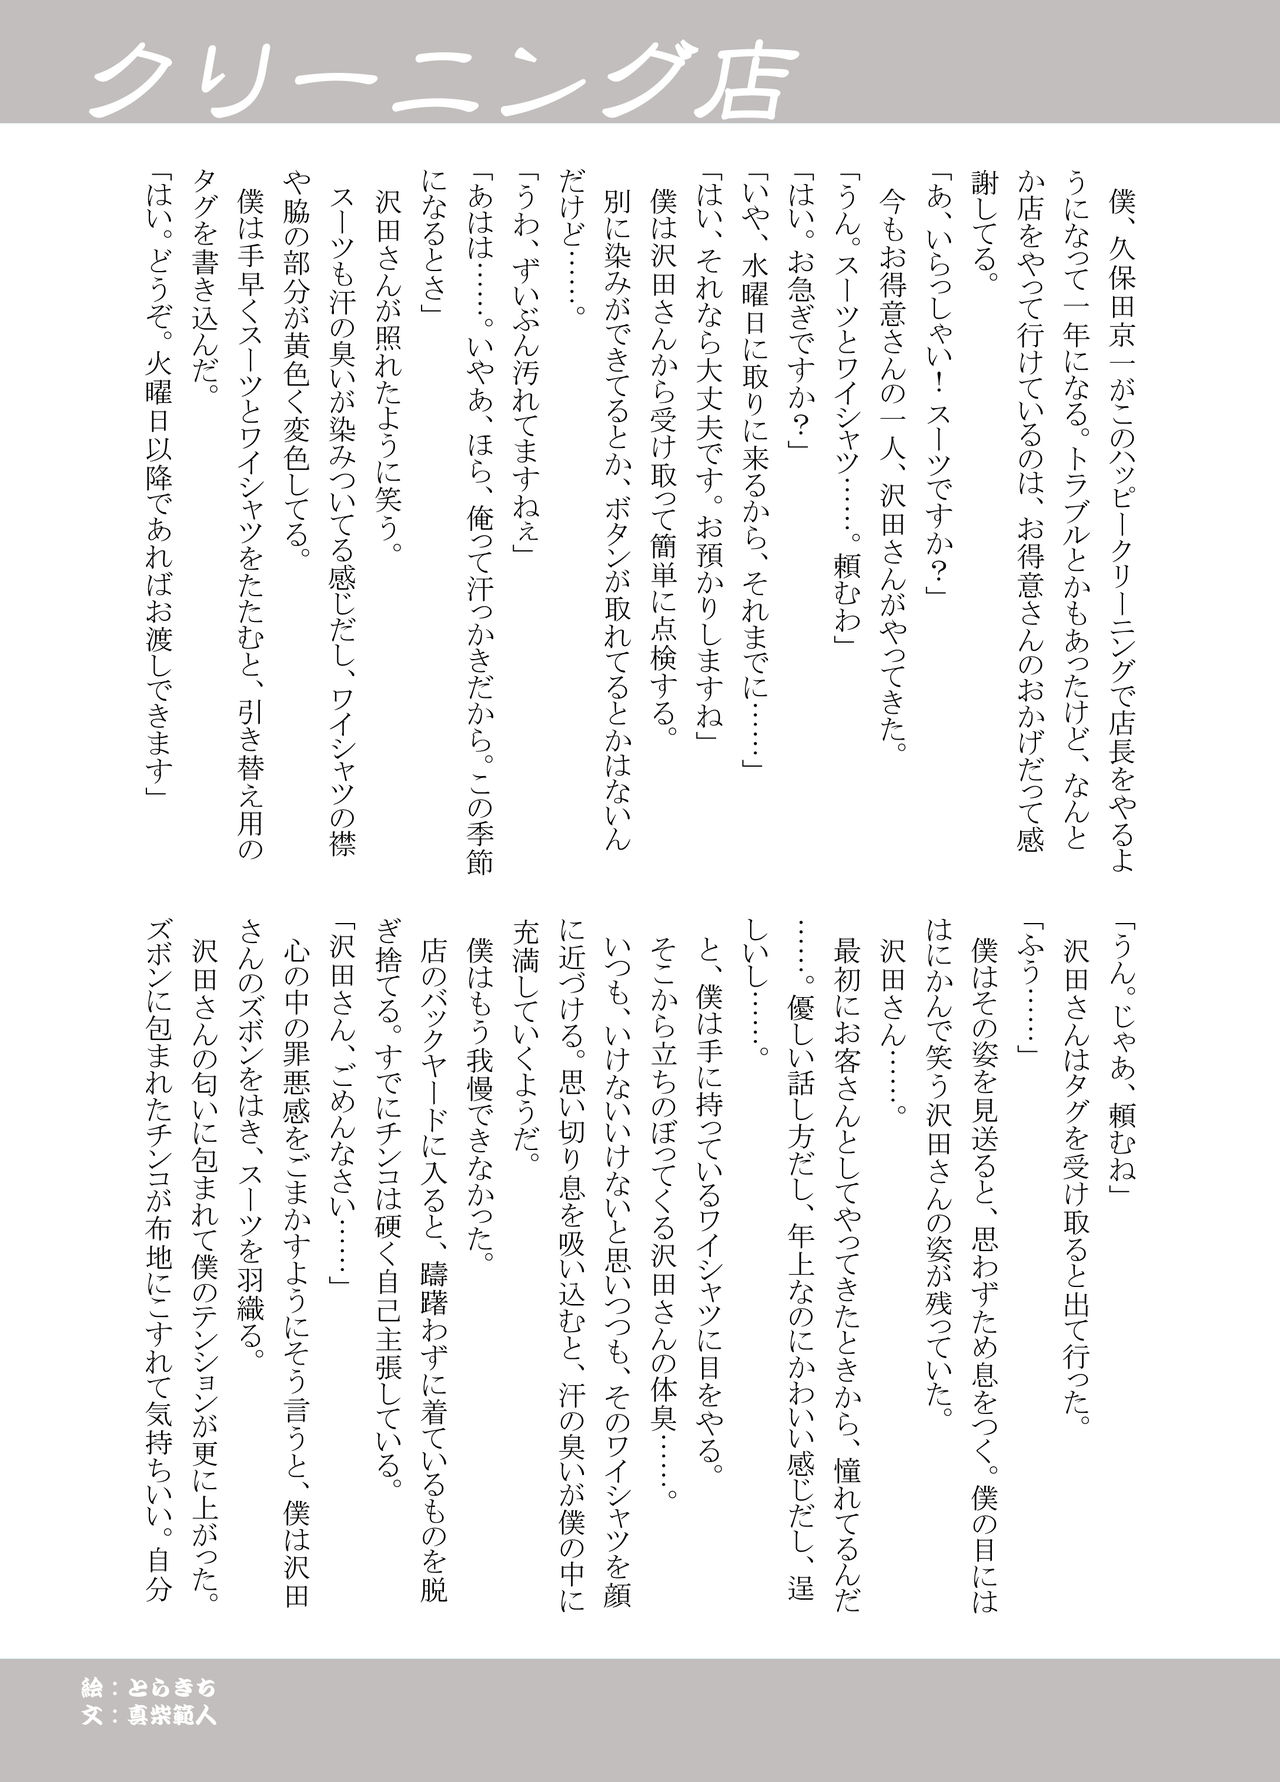 クリーニング店
　僕、久保田京一がこのハッピークリーニングで店長をやるよ
うになって一年になる。トラブルとかもあったけど、なんと
か店をやって行けているのは、お得意さんのおかげだって感
謝してる。
「あ、いらっしゃい！スーツですか？」
　今もお得意さんの一人、沢田さんがやってきた。
「うん。スーツとワイシャツ……。頼むわ」
「はい。お急ぎですか？」
「いや、水曜日に取りに来るから、それまでに……」
「はい、それなら大丈夫です。お預かりしますね」
　僕は沢田さんから受け取って簡単に点検する。
　別に染みができてるとか、ボタンが取れてるとかはないん
だけど……。
「うわ、ずいぶん汚れてますねぇ」
「あはは……。いやあ、ほら、俺って汗っかきだから。この季節
になるとさ」
　沢田さんが照れたように笑う。
　スーツも汗の臭いが染みついてる感じだし、ワイシャツの襟
や脇の部分が黄色く変色してる。
　僕は手早くスーツとワイシャツをたたむと、引き替え用の
タグを書き込んだ。
「はい。どうぞ。火曜日以降であればお渡しできます」
「うん。じゃあ、頼むね」
　沢田さんはタグを受け取ると出て行った。
「ふぅ……」
　僕はその姿を見送ると、思わずため息をつく。僕の目には
はにかんで笑う沢田さんの姿が残っていた。
　沢田さん……。
　最初にお客さんとしてやってきたときから、憧れてるんだ
……。優しい話し方だし、年上なのにかわいい感じだし、逞
しいし……。
　と、僕は手に持っているワイシャツに目をやる。
　そこから立ちのぼってくる沢田さんの体臭……。
　いつも、いけないいけないと思いつつも、そのワイシャツを顔
に近づける。思い切り息を吸い込むと、汗の臭いが僕の中に
充満していくようだ。
　僕はもう我慢できなかった。
　店のバックヤードに入ると、躊躇わずに着ているものを脱
ぎ捨てる。すでにチンコは硬く自己主張している。
「沢田さん、ごめんなさい……」
　心の中の罪悪感をごまかすようにそう言うと、僕は沢田
さんのズボンをはき、スーツを羽織る。
　沢田さんの匂いに包まれて僕のテンションが更に上がった。
ズボンに包まれたチンコが布地にこすれて気持ちいい。自分
絵：とらきち
文：真柴範人